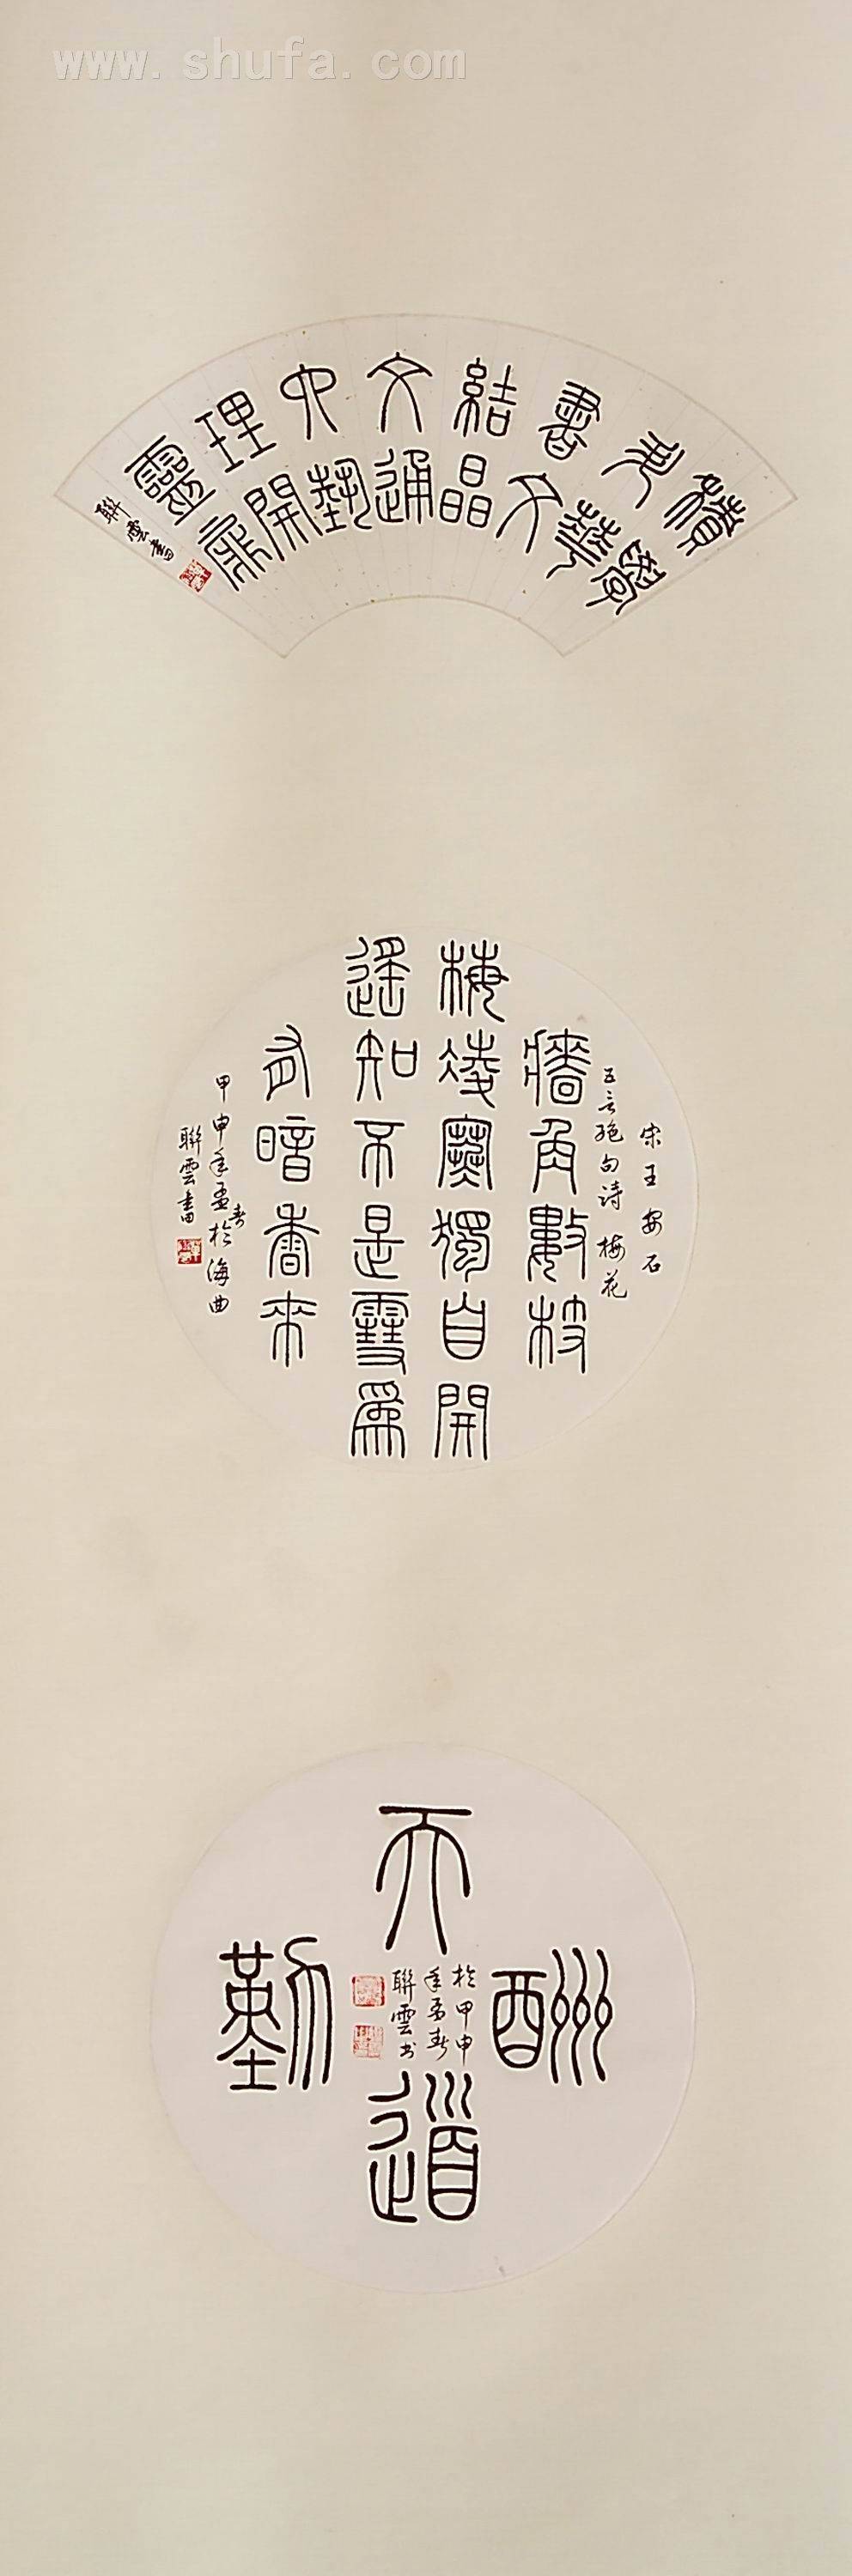 www.shufa.com
積學
華
書文
結晶
文通
中藝
理開
靈
聯雲書
宋王安石
五言絕句詩 梅花
牆角數枝
梅凌寒獨自開
遙知不是雪為
有暗香來
甲申年孟春於海曲
聯雲書
天道酬勤
於甲申
年孟春
聯雲书